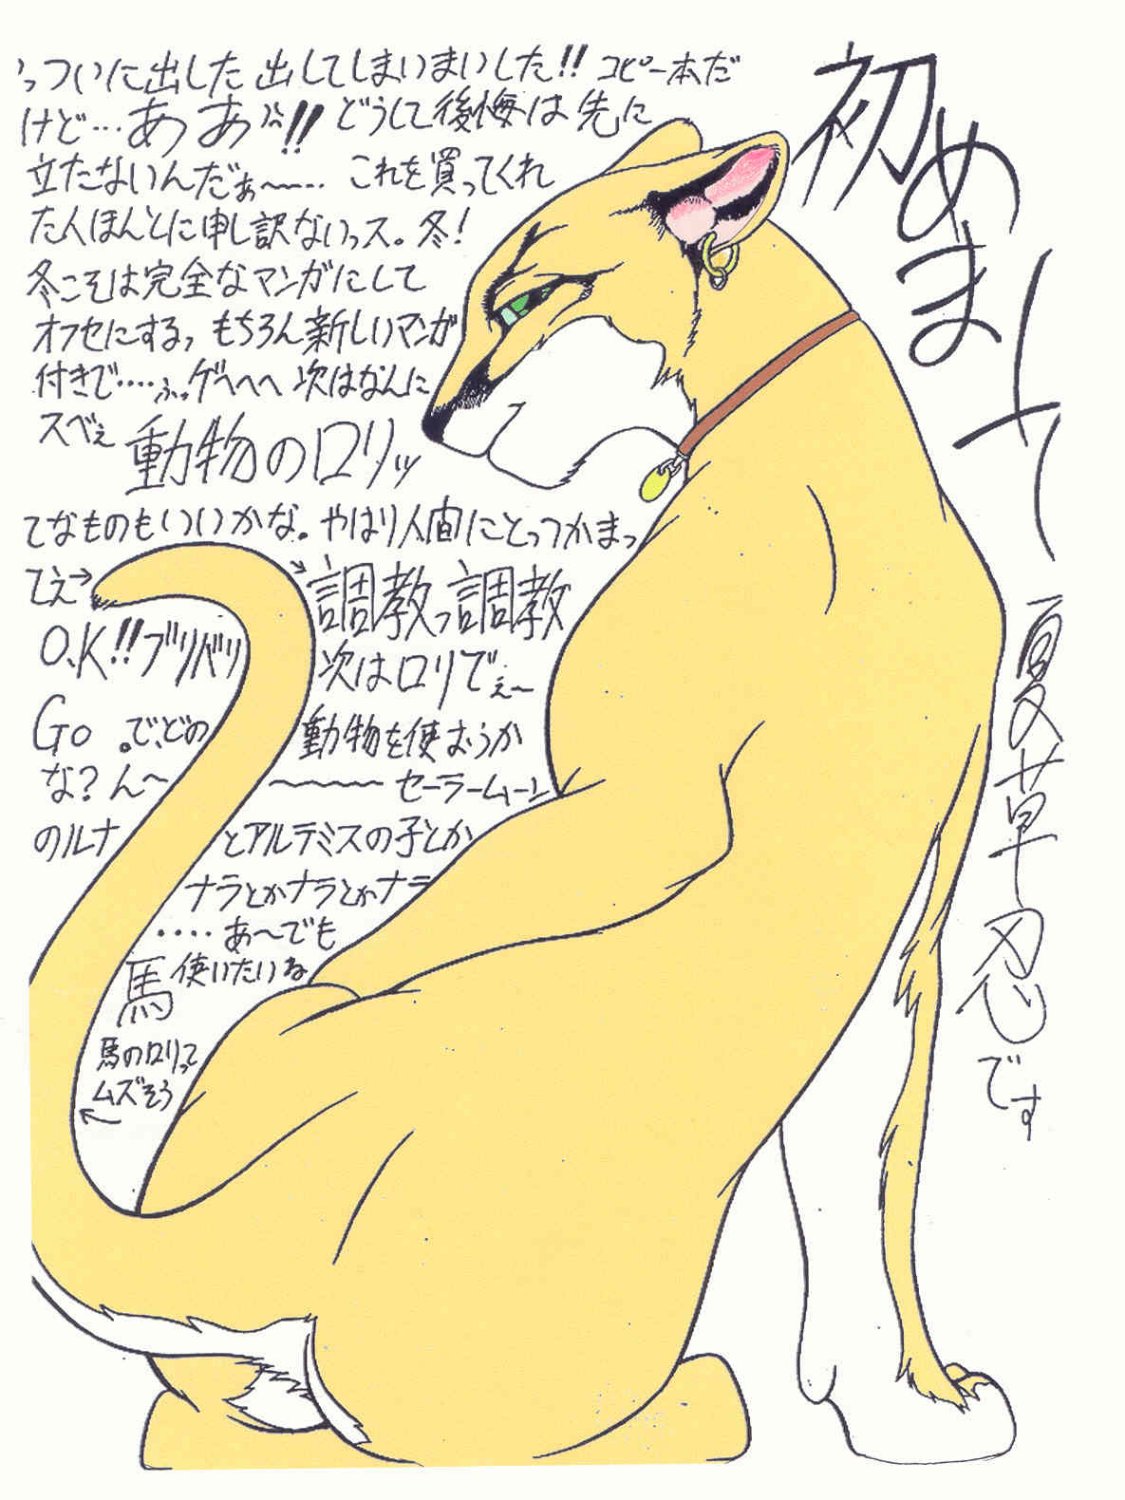 初めまして
夏草忍です
っついに出した出してしまいました!! コピー本だ
けど…ああ…!! どうして後悔は先に
立たないんだぁ〜…これを買ってくれ
た人ほんとに申し訳ないっス。冬!
冬こそは完全なマンガにして
オフセにする,もちろん新しいマンガ
付きで‥‥ふっゲヘヘヘ 次はなんに
スべぇ 動物のロリッ
てなものもいいかな。やはり人間にとっつかまっ
てえ→ 調教っ調教
O.K!!ブリバリ 次はロリでぇ〜
Go 。で、どの動物を使おうか
な?ん〜〜〜〜〜セーラームーン
のルナとアルテミスの子とか
ナラとかナラとかナラ
‥‥あ〜でも
馬使いたいね
馬のロリって
ムズそう